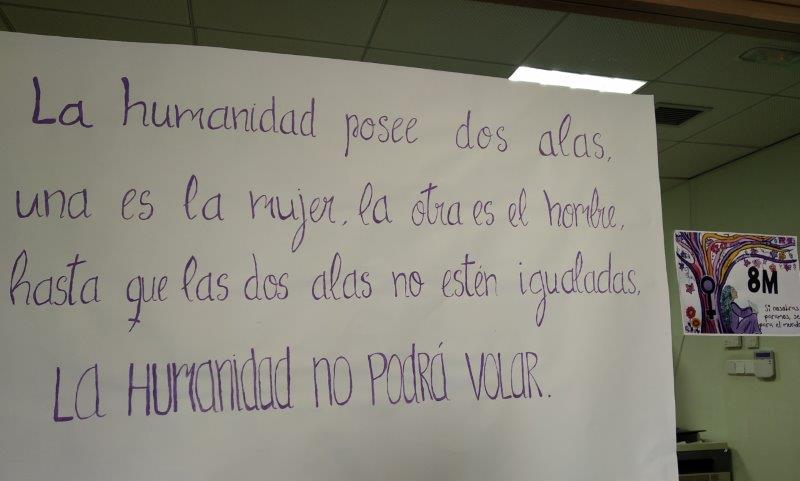 La humanidad posee dos alas,
una es la mujer, la otra es el hombre,
hasta que las dos alas no estén igualadas,
LA HUMANIDAD NO PODRÁ VOLAR.
8M
Si nosotras
paramos, se
para el mundo